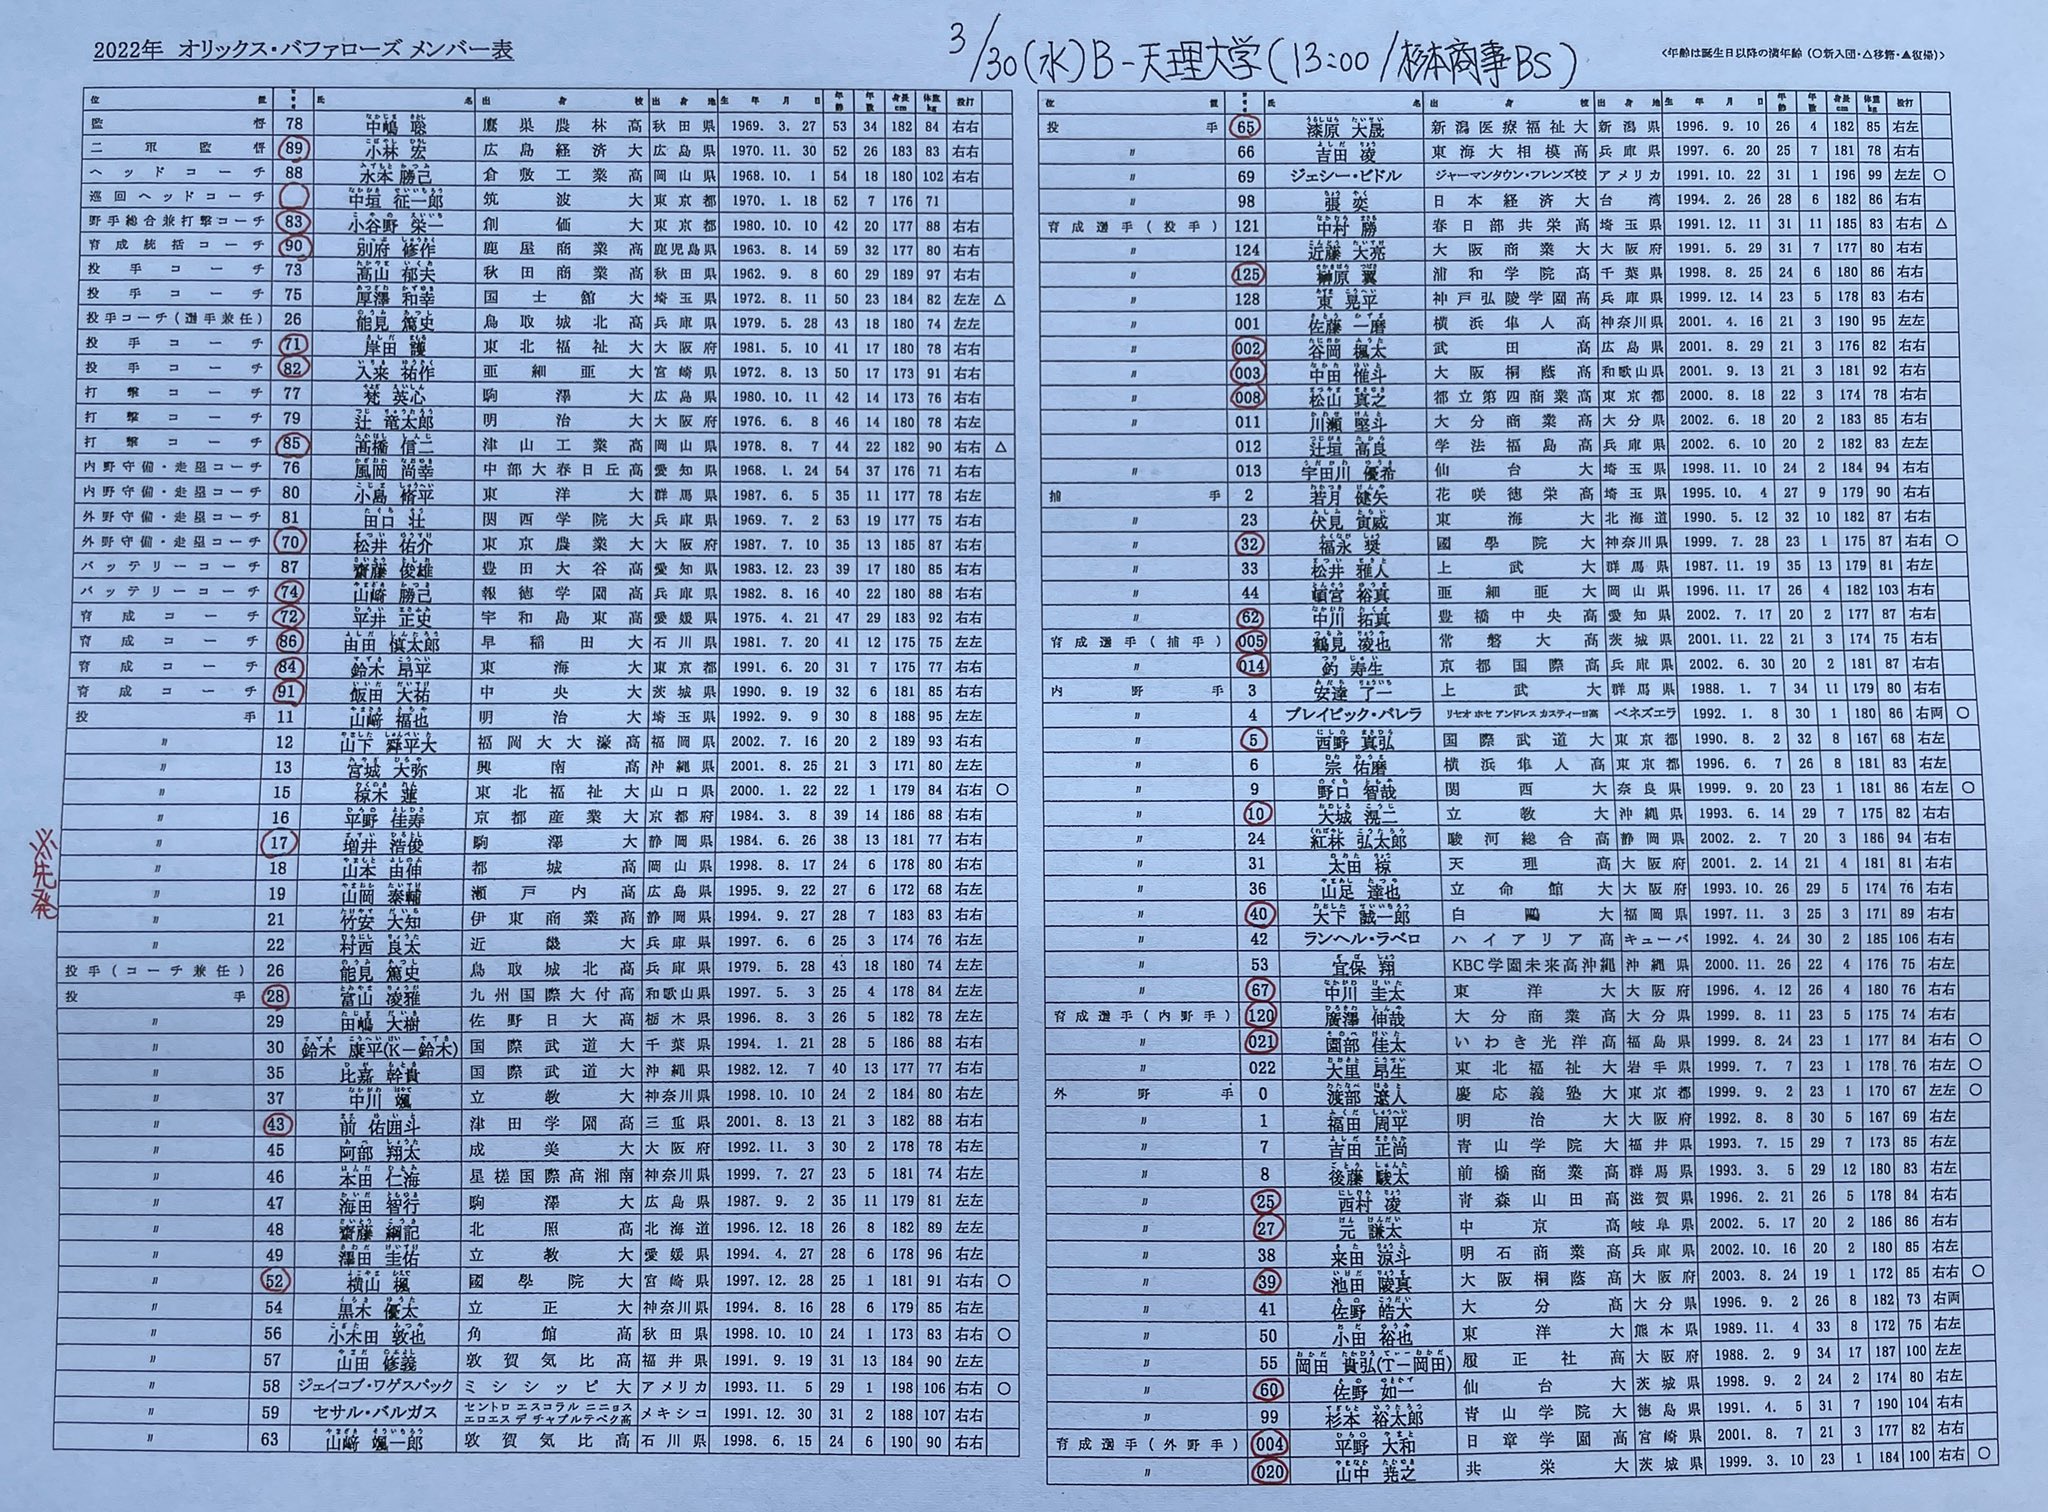 2022年 オリックス・バファローズ メンバー表
3/30(水)B-天理大学(13:00/杉本商事BS)
<年齢は誕生日以降の満年齢(○新入団・△移籍・▲復帰)>
位置 背番号 氏名 出身校 出身地 生年月日 年齢 年数 身長cm 体重kg 投打
監督 78 中嶋 聡 鷹巣農林高 秋田県 1969. 3. 27 53 34 182 84 右右
二軍監督 89 小林 宏 広島経済大 広島県 1970. 11. 30 52 26 183 83 右右
ヘッドコーチ 88 水本 勝己 倉敷工業高 岡山県 1968. 10. 1 54 18 180 102 右右
巡回ヘッドコーチ 中垣 征一郎 筑波大 東京都 1970. 1. 18 52 7 176 71
野手総合兼打撃コーチ 83 小谷野 栄一 創価大 東京都 1980. 10. 10 42 20 177 88 右右
育成統括コーチ 90 別府 修作 鹿屋商業高 鹿児島県 1963. 8. 14 59 32 177 80 右右
投手コーチ 73 高山 郁夫 秋田商業高 秋田県 1962. 9. 8 60 29 189 97 右右
投手コーチ 75 厚澤 和幸 国士館大 埼玉県 1972. 8. 11 50 23 184 82 左左 △
投手コーチ(選手兼任) 26 能見 篤史 鳥取城北高 兵庫県 1979. 5. 28 43 18 180 74 左左
投手コーチ 71 岸田 護 東北福祉大 大阪府 1981. 5. 10 41 17 180 78 右右
投手コーチ 82 入来 祐作 亜細亜大 宮崎県 1972. 8. 13 50 17 173 91 右右
打撃コーチ 77 梵 英心 駒澤大 広島県 1980. 10. 11 42 14 173 76 右右
打撃コーチ 79 辻 竜太郎 明治大 大阪府 1976. 6. 8 46 14 180 78 右左
打撃コーチ 85 髙橋 信二 津山工業高 岡山県 1978. 8. 7 44 22 182 90 右右 △
内野守備・走塁コーチ 76 風岡 尚幸 中部大春日丘高 愛知県 1968. 1. 24 54 37 176 71 右右
内野守備・走塁コーチ 80 小島 脩平 東洋大 群馬県 1987. 6. 5 35 11 177 78 右左
外野守備・走塁コーチ 81 田口 壮 関西学院大 兵庫県 1969. 7. 2 53 19 177 75 右右
外野守備・走塁コーチ 70 松井 佑介 東京農業大 大阪府 1987. 7. 10 35 13 185 87 右右
バッテリーコーチ 87 齋藤 俊雄 豊田大谷高 愛知県 1983. 12. 23 39 17 180 85 右右
バッテリーコーチ 74 山崎 勝己 報徳学園高 兵庫県 1982. 8. 16 40 22 180 88 右右
育成コーチ 72 平井 正史 宇和島東高 愛媛県 1975. 4. 21 47 29 183 92 右右
育成コーチ 86 由田 慎太郎 早稲田大 石川県 1981. 7. 20 41 12 175 75 左左
育成コーチ 84 鈴木 昂平 東海大 東京都 1991. 6. 20 31 7 175 77 右右
育成コーチ 91 飯田 大祐 中央大 茨城県 1990. 9. 19 32 6 181 85 右右
投手 11 山﨑 福也 明治大 埼玉県 1992. 9. 9 30 8 188 95 左左
〃 12 山下 舜平大 福岡大大濠高 福岡県 2002. 7. 16 20 2 189 93 右右
〃 13 宮城 大弥 興南高 沖縄県 2001. 8. 25 21 3 171 80 左左
〃 15 椋木 蓮 東北福祉大 山口県 2000. 1. 22 22 1 179 84 右右 ○
〃 16 平野 佳寿 京都産業大 京都府 1984. 3. 8 39 14 186 88 右右
※先発
〃 17 増井 浩俊 駒澤大 静岡県 1984. 6. 26 38 13 181 77 右右
〃 18 山本 由伸 都城高 岡山県 1998. 8. 17 24 6 178 80 右右
〃 19 山岡 泰輔 瀬戸内高 広島県 1995. 9. 22 27 6 172 68 右左
〃 21 竹安 大知 伊東商業高 静岡県 1994. 9. 27 28 7 183 83 右右
〃 22 村西 良太 近畿大 兵庫県 1997. 6. 6 25 3 174 76 右左
投手(コーチ兼任) 26 能見 篤史 鳥取城北高 兵庫県 1979. 5. 28 43 18 180 74 左左
投手 28 富山 凌雅 九州国際大付高 和歌山県 1997. 5. 3 25 4 178 84 左左
〃 29 田嶋 大樹 佐野日大高 栃木県 1996. 8. 3 26 5 182 78 左左
〃 30 鈴木 康平(K-鈴木) 国際武道大 千葉県 1994. 1. 21 28 5 186 88 右右
〃 35 比嘉 幹貴 国際武道大 沖縄県 1982. 12. 7 40 13 177 77 右右
〃 37 中川 颯 立教大 神奈川県 1998. 10. 10 24 2 184 80 右左
〃 43 前 佑囲斗 津田学園高 三重県 2001. 8. 13 21 3 182 88 右右
〃 45 阿部 翔太 成美大 大阪府 1992. 11. 3 30 2 178 78 右左
〃 46 本田 仁海 星槎国際高湘南 神奈川県 1999. 7. 27 23 5 181 74 右左
〃 47 海田 智行 駒澤大 広島県 1987. 9. 2 35 11 179 81 左左
〃 48 齋藤 綱記 北照高 北海道 1996. 12. 18 26 8 182 89 左左
〃 49 澤田 圭佑 立教大 愛媛県 1994. 4. 27 28 6 178 96 右左
〃 52 横山 楓 國學院大 宮崎県 1997. 12. 28 25 1 181 91 右右 ○
〃 54 黒木 優太 立正大 神奈川県 1994. 8. 16 28 6 179 85 右左
〃 56 小木田 敦也 角館高 秋田県 1998. 10. 10 24 1 173 83 右右 ○
〃 57 山田 修義 敦賀気比高 福井県 1991. 9. 19 31 13 184 90 左左
〃 58 ジェイコブ・ワゲスパック ミシシッピ大 アメリカ 1993. 11. 5 29 1 198 106 右右 ○
〃 59 セサル・バルガス セントロ エスコラル ニニョス エロエス デ チャプルテペク高 メキシコ 1991. 12. 30 31 2 188 107 右右
〃 63 山﨑 颯一郎 敦賀気比高 石川県 1998. 6. 15 24 6 190 90 右右
位置 背番号 氏名 出身校 出身地 生年月日 年齢 年数 身長cm 体重kg 投打
投手 65 漆原 大晟 新潟医療福祉大 新潟県 1996. 9. 10 26 4 182 85 右左
〃 66 吉田 凌 東海大相模高 兵庫県 1997. 6. 20 25 7 181 78 右右
〃 69 ジェシー・ビドル ジャーマンタウン・フレンズ校 アメリカ 1991. 10. 22 31 1 196 99 左左 ○
〃 98 張 奕 日本経済大 台湾 1994. 2. 26 28 6 182 86 右右
育成選手(投手) 121 中村 勝 春日部共栄高 埼玉県 1991. 12. 11 31 11 185 83 右右 △
〃 124 近藤 大亮 大阪商業大 大阪府 1991. 5. 29 31 7 177 80 右右
〃 125 榊原 翼 浦和学院高 千葉県 1998. 8. 25 24 6 180 86 右右
〃 128 東 晃平 神戸弘陵学園高 兵庫県 1999. 12. 14 23 5 178 83 右右
〃 001 佐藤 一磨 横浜隼人高 神奈川県 2001. 4. 16 21 3 190 95 左左
〃 002 谷岡 楓太 武田高 広島県 2001. 8. 29 21 3 176 82 右右
〃 003 中田 惟斗 大阪桐蔭高 和歌山県 2001. 9. 13 21 3 181 92 右右
〃 008 松山 真之 都立第四商業高 東京都 2000. 8. 18 22 3 174 78 右右
〃 011 川瀬 堅斗 大分商業高 大分県 2002. 6. 18 20 2 183 85 右右
〃 012 辻垣 高良 学法福島高 兵庫県 2002. 6. 10 20 2 182 83 左左
〃 013 宇田川 優希 仙台大 埼玉県 1998. 11. 10 24 2 184 94 右右
捕手 2 若月 健矢 花咲徳栄高 埼玉県 1995. 10. 4 27 9 179 90 右右
〃 23 伏見 寅威 東海大 北海道 1990. 5. 12 32 10 182 87 右右
〃 32 福永 奨 國學院大 神奈川県 1999. 7. 28 23 1 175 87 右右 ○
〃 33 松井 雅人 上武大 群馬県 1987. 11. 19 35 13 179 81 右左
〃 44 頓宮 裕真 亜細亜大 岡山県 1996. 11. 17 26 4 182 103 右右
〃 62 中川 拓真 豊橋中央高 愛知県 2002. 7. 17 20 2 177 87 右右
育成選手(捕手) 005 鶴見 凌也 常磐大高 茨城県 2001. 11. 22 21 3 174 75 右右
〃 014 釣 寿生 京都国際高 兵庫県 2002. 6. 30 20 2 181 87 右右
内野手 3 安達 了一 上武大 群馬県 1988. 1. 7 34 11 179 80 右右
〃 4 ブレイビック・バレラ リセオ ホセ アンドレス カスティーヨ高 ベネズエラ 1992. 1. 8 30 1 180 86 右両 ○
〃 5 西野 真弘 国際武道大 東京都 1990. 8. 2 32 8 167 68 右左
〃 6 宗 佑磨 横浜隼人高 東京都 1996. 6. 7 26 8 181 83 右左
〃 9 野口 智哉 関西大 奈良県 1999. 9. 20 23 1 181 86 右左 ○
〃 10 大城 滉二 立教大 沖縄県 1993. 6. 14 29 7 175 82 右右
〃 24 紅林 弘太郎 駿河総合高 静岡県 2002. 2. 7 20 3 186 94 右右
〃 31 太田 椋 天理高 大阪府 2001. 2. 14 21 4 181 81 右右
〃 36 山足 達也 立命館大 大阪府 1993. 10. 26 29 5 174 76 右右
〃 40 大下 誠一郎 白鷗大 福岡県 1997. 11. 3 25 3 171 89 右右
〃 42 ランヘル・ラベロ ハイアリア高 キューバ 1992. 4. 24 30 2 185 106 右右
〃 53 宜保 翔 KBC学園未来高沖縄 沖縄県 2000. 11. 26 22 4 176 75 右左
〃 67 中川 圭太 東洋大 大阪府 1996. 4. 12 26 4 180 76 右右
育成選手(内野手) 120 廣澤 伸哉 大分商業高 大分県 1999. 8. 11 23 5 175 74 右右
〃 021 園部 佳太 いわき光洋高 福島県 1999. 8. 24 23 1 177 84 右右 ○
〃 022 大里 昂生 東北福祉大 岩手県 1999. 7. 7 23 1 178 76 右左 ○
外野手 0 渡部 遼人 慶応義塾大 東京都 1999. 9. 2 23 1 170 67 左左 ○
〃 1 福田 周平 明治大 大阪府 1992. 8. 8 30 5 167 69 右左
〃 7 吉田 正尚 青山学院大 福井県 1993. 7. 15 29 7 173 85 右左
〃 8 後藤 駿太 前橋商業高 群馬県 1993. 3. 5 29 12 180 83 右左
〃 25 西村 凌 青森山田高 滋賀県 1996. 2. 21 26 5 178 84 右右
〃 27 元 謙太 中京高 岐阜県 2002. 5. 17 20 2 186 86 右右
〃 38 来田 涼斗 明石商業高 兵庫県 2002. 10. 16 20 2 180 85 右左
〃 39 池田 陵真 大阪桐蔭高 大阪府 2003. 8. 24 19 1 172 85 右右 ○
〃 41 佐野 皓大 大分高 大分県 1996. 9. 2 26 8 182 73 右両
〃 50 小田 裕也 東洋大 熊本県 1989. 11. 4 33 8 172 75 右左
〃 55 岡田 貴弘(T-岡田) 履正社高 大阪府 1988. 2. 9 34 17 187 100 左左
〃 60 佐野 如一 仙台大 茨城県 1998. 9. 2 24 2 174 80 右左
〃 99 杉本 裕太郎 青山学院大 徳島県 1991. 4. 5 31 7 190 104 右右
育成選手(外野手) 004 平野 大和 日章学園高 宮崎県 2001. 8. 7 21 3 177 82 右右
〃 020 山中 尭之 共栄大 茨城県 1999. 3. 10 23 1 184 100 右右 ○